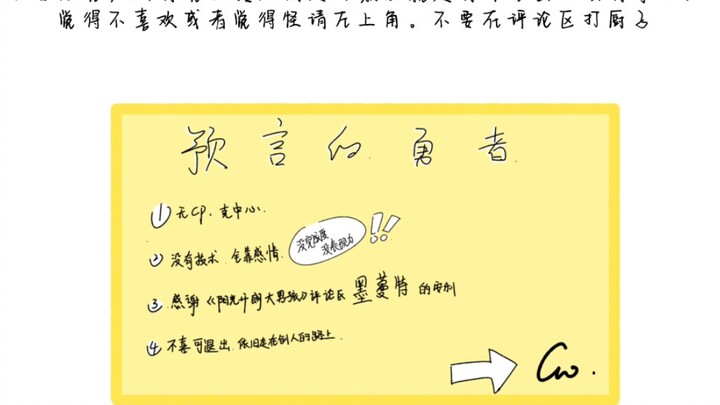 觉得不喜欢或者觉得怪请左上角。不要在评论区打厨子
预言的勇者
①无CP,克中心.
②没有技术.全靠感情.
没完成度
没表现力
!!
③感谢《阳光开朗大男孩》评论区墨蔓特的审判
④不喜可退出.依旧走在创人的路上.
Cuo.